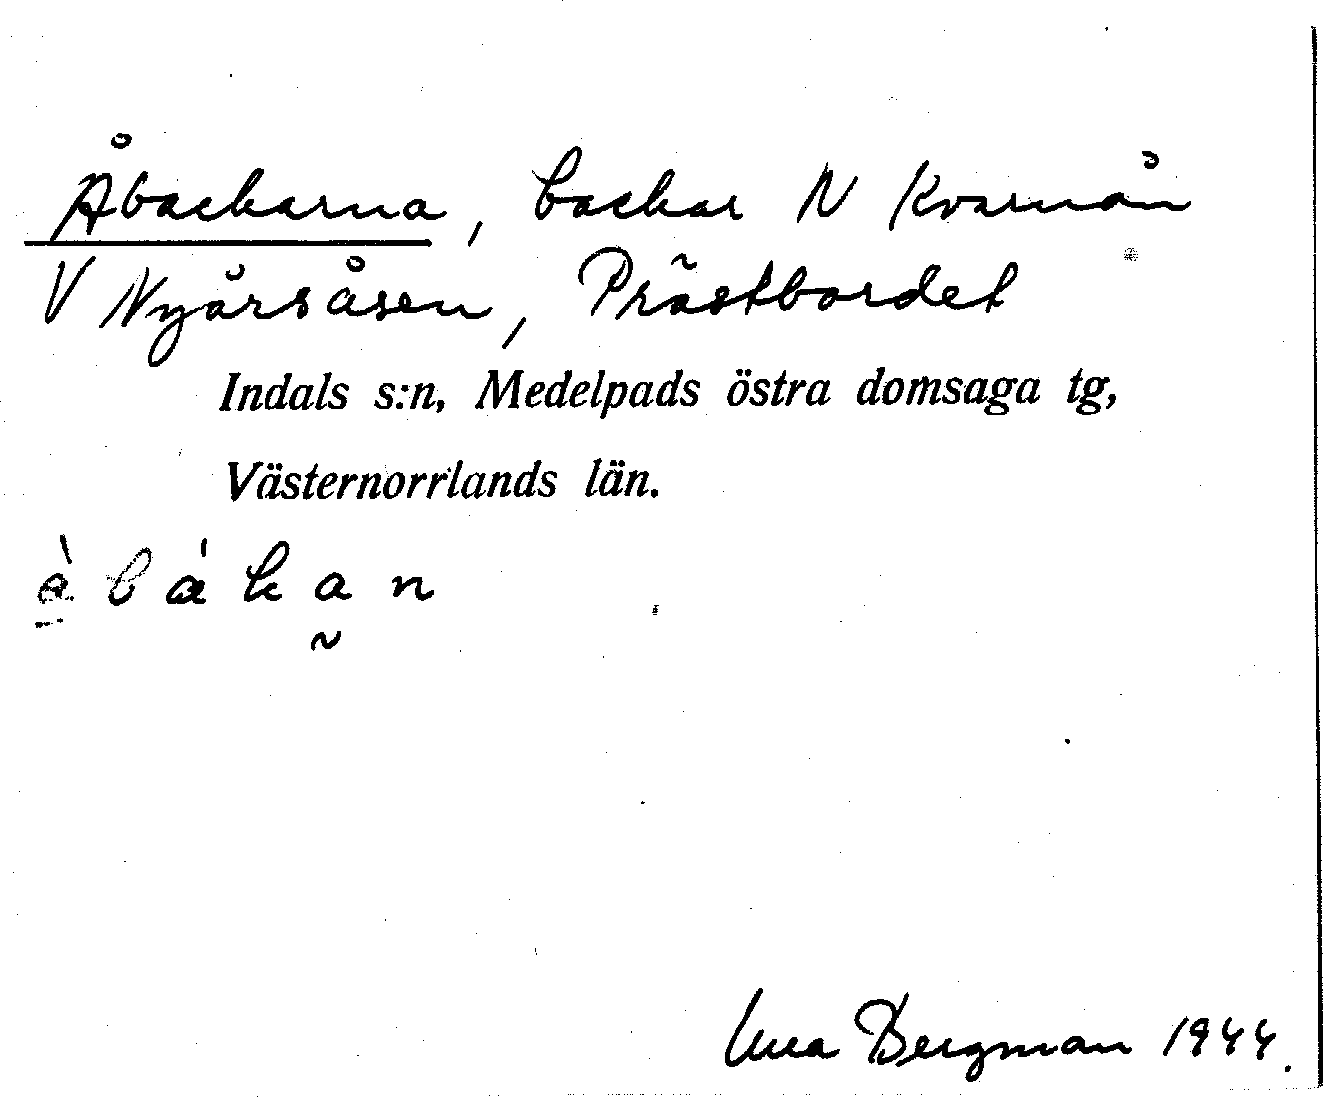 Åbackarna, backar N Kvarnån
V Nyårsåsen, Prästbordet
Indals s:n, Medelpads östra domsaga tg,
Västernorrlands län.
Bergman 1944.